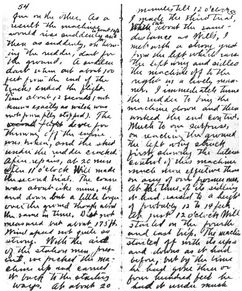 54
gun on the other. As a
result the machine
would rise suddenly to
then as suddenly, on turn-
ing the rudder, dart for
the ground. A sudden
dart when out about 100
feet from the end of the
tracks ended the flight.
Time about 12 seconds (not
known exactly as watch was
not promptly stopped). The
lever for
throwing off the engine
was broken, and the skid
under the rudder cracked.
After repairs, at 20 min.
after 11 o'clock Will made
the second trial. The course
was about like mine, up
and down but a little longer
over the ground though about
the same in time. Dist. not
measured but about 175 ft.
Wind speed not quite so
strong. With the aid
of the station men pres-
ent, we picked the ma-
chine up and carried
it back to the starting
ways. At about 20
minutes till 12 o'clock
I made the third trial.
When out about the same
distance as Will's, I
met with a strong gust
from the left which raised
the left wing and sidled
the machine off to the
right in a lively man-
ner. I immediately turned
the rudder to bring the
machine down and then
worked the end control.
Much to our surprise,
on reaching the ground
the left wing struck
first, showing the lateral
control of this machine
much more effective than
on any of our former ones.
At the time of its sidling
it had raised to a height
of probably 12 to 14 feet.
At just 12 o'clock Will
started on the fourth
and last trip. The machine
started off with its ups
and downs as it had
before, but by the time
he had gone three or
four hundred feet he
had it under much